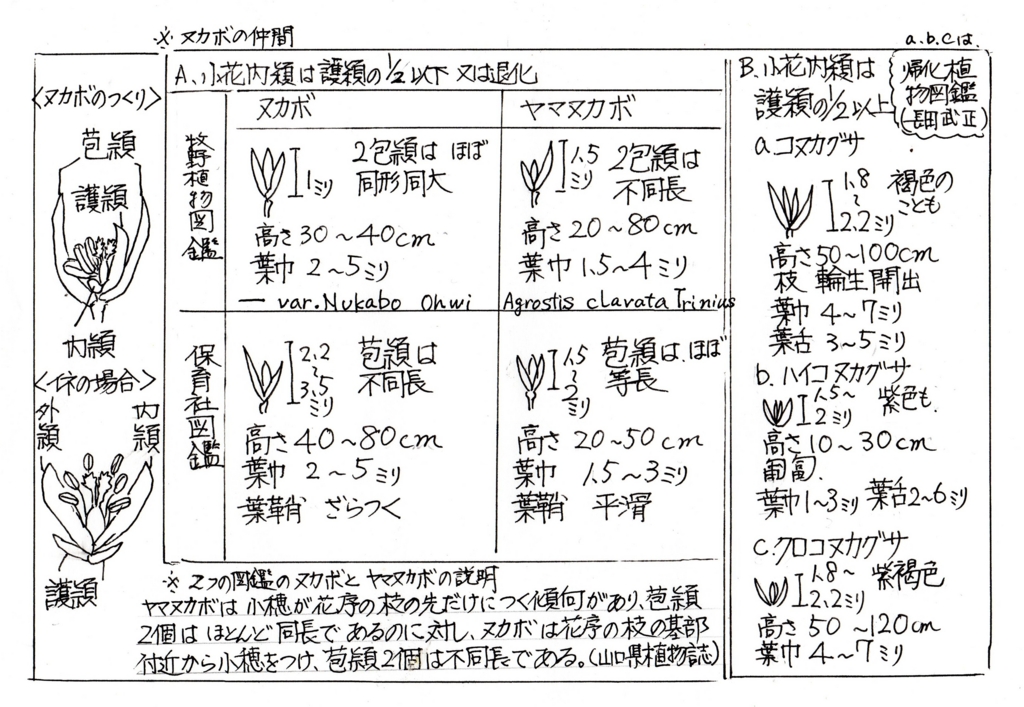 ※ ヌカボの仲間
a.b.cは.
帰化植
物図鑑
(長田武正)
<ヌカボのつくり>
苞穎
護穎
内穎
<イネの場合>
外穎
内穎
護穎
A、小花内穎は護穎の1/2以下 又は退化
ヌカボ
ヤマヌカボ
牧野植物図鑑
1ミリ
2包穎は ほぼ
同形同大
高さ30～40cm
葉巾 2～5ミリ
— var.Nukabo Ohwi
1.5ミリ
2包穎は
不同長
高さ20～80cm
葉巾 1.5～4ミリ
Agrostis clavata Trinius
保育社図鑑
2.2～3.5ミリ
苞穎は
不同長
高さ40～80cm
葉巾 2～5ミリ
葉鞘 ざらつく
1.5～2ミリ
苞穎は、ほぼ
等長
高さ20～50cm
葉巾 1.5～3ミリ
葉鞘 平滑
※ 2つの図鑑のヌカボとヤマヌカボの説明
ヤマヌカボは小穂が花序の枝の先だけにつく傾向があり、苞穎
2個はほとんど同長であるのに対し、ヌカボは花序の枝の基部
付近から小穂をつけ、苞穎2個は不同長である。(山口県植物誌)
B.小花内穎は
護穎の1/2以上
a.コヌカグサ
1.8～2.2ミリ
褐色の
ことも
高さ50～100cm
枝 輪生開出
葉巾 4～7ミリ
葉舌 3～5ミリ
b.ハイコヌカグサ
1.5～
2ミリ
紫色も.
高さ10～30cm
匍匐.
葉巾1～3ミリ 葉舌2～6ミリ
c.クロコヌカグサ
1.8～
2.2ミリ
紫褐色
高さ50～120cm
葉巾 4～7ミリ